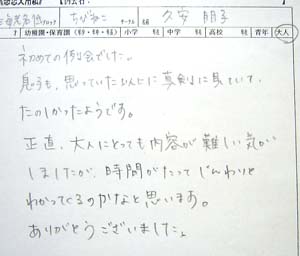 ブロック ちびねこ サークル 名前 久安 朋子
幼稚園・保育園 小学 年 中学 年 高校 年 青年 大人
初めての例会でした。
息子も、思っていた以上に真剣に見ていて、
たのしかったようです。
正直、大人にとっても内容が難しい気が
しましたが、時間がたってじんわりと
わかってくるのかなと思います。
ありがとうございました。